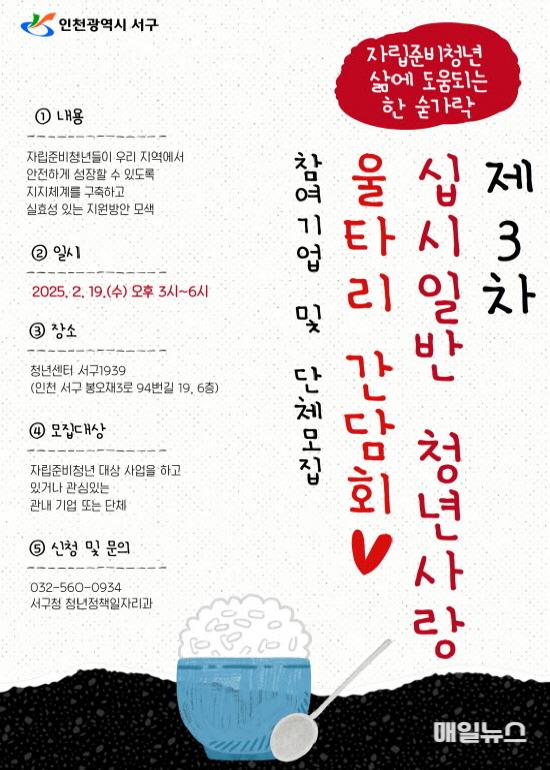 인천광역시 서구
자립준비청년
삶에 도움되는
한 숟가락
제3차
십시일반 청년사랑
울타리 간담회
참여기업 및 단체모집
① 내용
자립준비청년들이 우리 지역에서
안전하게 성장할 수 있도록
지지체계를 구축하고
실효성 있는 지원방안 모색
② 일시
2025. 2. 19.(수) 오후 3시~6시
③ 장소
청년센터 서구1939
(인천 서구 봉오재3로 94번길 19, 6층)
④ 모집대상
자립준비청년 대상 사업을 하고
있거나 관심있는
관내 기업 또는 단체
⑤ 신청 및 문의
032-560-0934
서구청 청년정책일자리과
매일뉴스